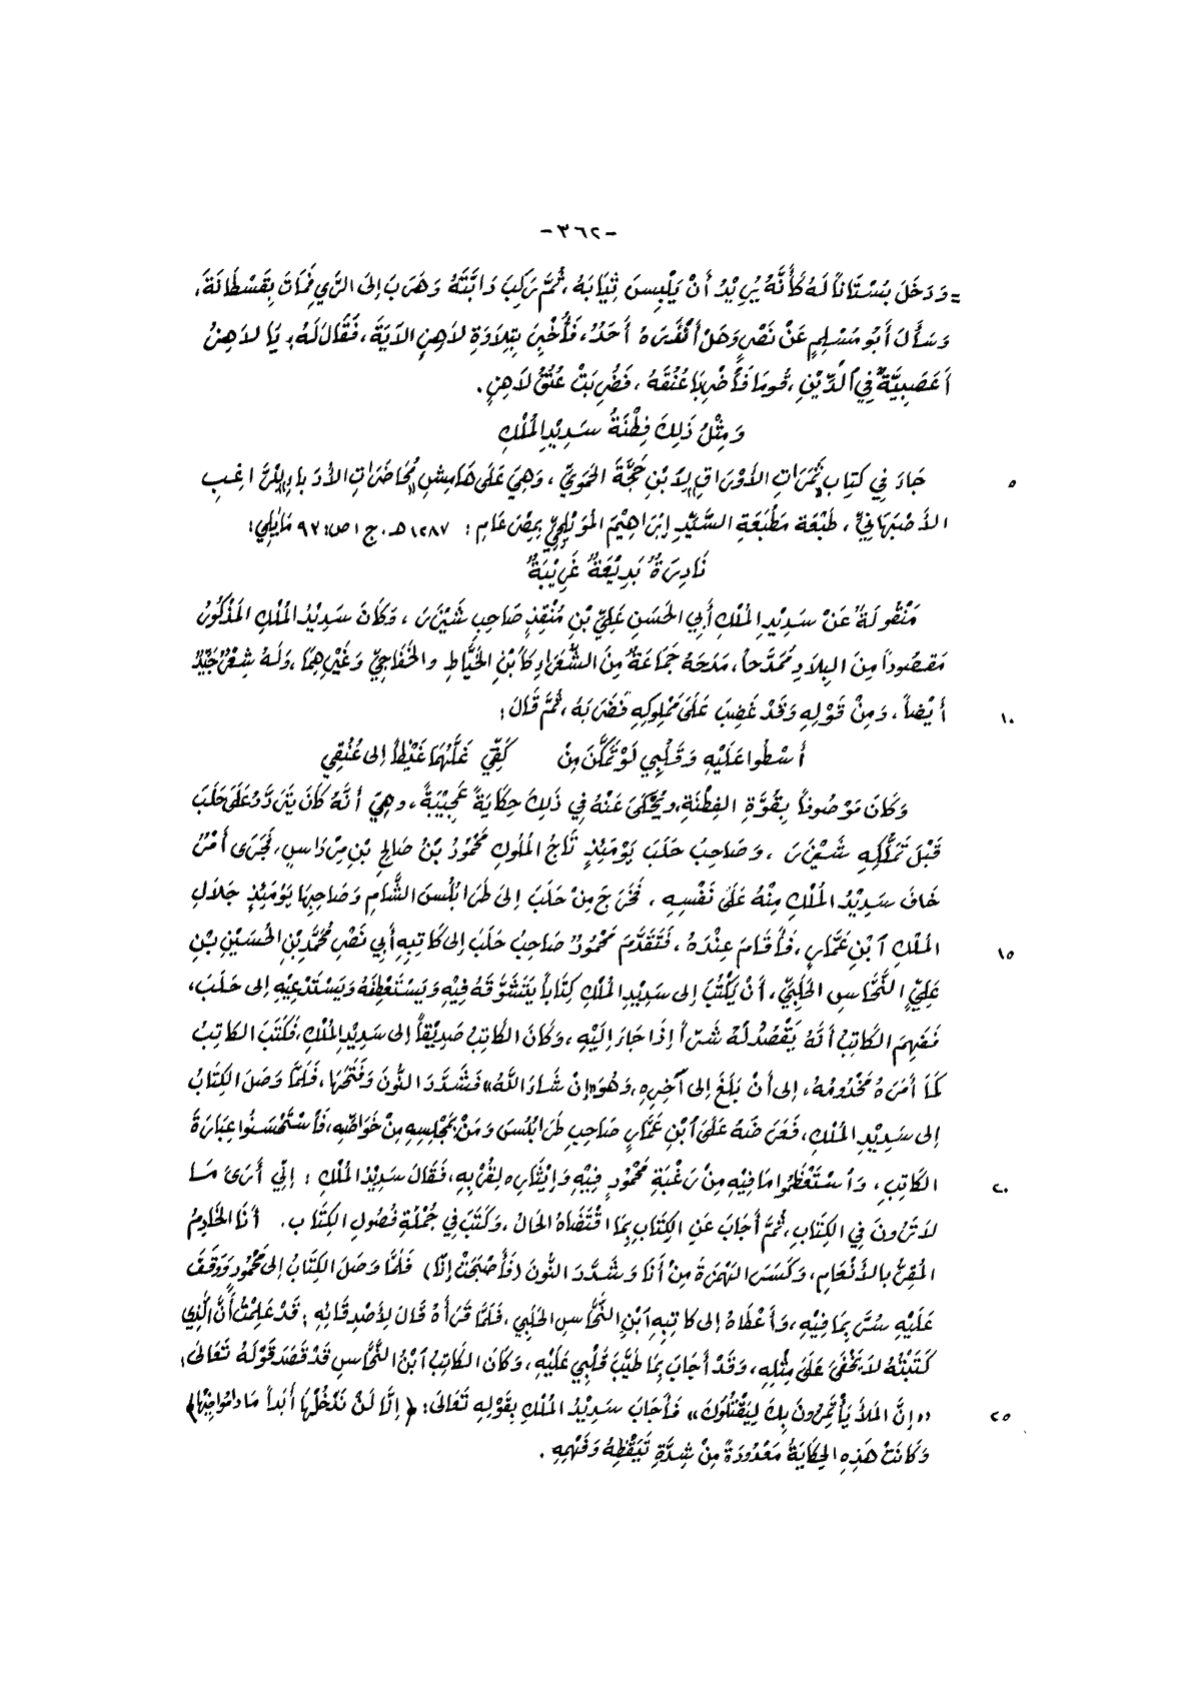 -٣٦٢-
= وَدَخَلَ بُسْتَاناً لَهُ كَأَنَّهُ يُرِيْدُ أَنْ يَلْبِسَ ثِيَابَهُ ، ثُمَّ رَكِبَ دَابَّتَهُ وَهَرَبَ إِلَى الرَّيِّ فَمَاتَ بِقَسْطَانَةَ ،
وَسَأَلَ أَبُو مُسْلِمٍ عَنْ نَصْرٍ وَهَلْ أَنْذَرَهُ أَحَدٌ ، فَأُخْبِرَ بِتِلَاوَةِ لَاهِزٍ الآيَةَ ، فَقَالَ لَهُ : يَا لَاهِزُ
أَعَصَبِيَّةٌ فِي الدِّيْنِ ، قُومَا فَاضْرِبَا عُنُقَهُ ، فَضُرِبَتْ عُنُقُ لَاهِزٍ .
وَمِثْلُ ذَلِكَ فِطْنَةُ سَدِيْدِ المُلْكِ
٥ جَاءَ فِي كِتَابِ «ثَمَرَاتِ الأَوْرَاقِ» لِابْنِ حَجَّةَ الحَمَوِيِّ ، وَهِيَ عَلَى هَامِشِ «مُحَاضَرَاتِ الأُدَبَاءِ» لِلرَّاغِبِ
الأَصْبَهَانِيِّ ، طَبْعَة مَطْبَعَةِ السَّيِّدِ إِبْرَاهِيْمَ المُوَيْلِحِيِّ بِمِصْرَ عَامِ : ١٢٨٧ هـ . ج ١ ص : ٩٢ مَايَلِي :
نَادِرَةٌ بَدِيْعَةٌ غَرِيْبَةٌ
مَنْقُولَةٌ عَنْ سَدِيْدِ المُلْكِ أَبِي الحَسَنِ عَلِيِّ بْنِ مُنْقِذٍ صَاحِبِ شَيْزَرَ ، وَكَانَ سَدِيْدُ المُلْكِ المَذْكُورُ
مَقصُوداً مِنَ البِلَادِ مُمَدَّحاً ، مَدَحَهُ جَمَاعَةٌ مِنَ الشُّعَرَاءِ كَابْنِ الخَيَّاطِ والخَفَاجِيِّ وَغَيْرِهِمَا ، وَلَهُ شِعْرٌ جَيِّدٌ
١٠ أَيْضاً ، وَمِنْ قَوْلِهِ وَقَدْ غَضِبَ عَلَى مَمْلُوكِهِ فَضَرَبَهُ ، ثُمَّ قَالَ :
أَسْطُوا عَلَيْهِ وَقَلْبِي لَوْ تَمَكَّنَ مِنْ كَفِّي غَلَّهُمَا غَيْظاً إِلَى عُنُقِي
وَكَانَ مَوْصُوفاً بِقُوَّةِ الفِطْنَةِ ، وَيُحْكَى عَنْهُ فِي ذَلِكَ حِكَايَةٌ عَجِيْبَةٌ ، وَهِيَ أَنَّهُ كَانَ يَتَرَدَّدُ عَلَى حَلَبَ
قَبْلَ تَمَلُّكِهِ شَيْزَرَ ، وَصَاحِبُ حَلَبَ يَوْمَئِذٍ تَاجُ المُلُوكِ مَحْمُودُ بْنُ صَالِحِ بْنِ مِرْدَاسٍ ، فَجَرَى أَمْرٌ
خَافَ سَدِيْدُ المُلْكِ مِنْهُ عَلَى نَفْسِهِ ، فَخَرَجَ مِنْ حَلَبَ إِلَى طَرَابُلُسَ الشَّامِ وَصَاحِبُهَا يَوْمَئِذٍ جَلَالُ
١٥ المُلْكِ ابْنِ عَمَّارٍ ، فَأَقَامَ عِنْدَهُ ، فَتَقَدَّمَ مَحْمُودٌ صَاحِبُ حَلَبَ إِلى كَاتِبِهِ أَبِي نَصْرٍ مُحَمَّدِ بْنِ الحُسَيْنِ بْنِ
عَلِيٍّ النَّحَّاسِ الحَلَبِيِّ ، أَنْ يَكْتُبَ إِلى سَدِيْدِ المُلْكِ كِتَاباً يَتَشَوَّقَهُ فِيْهِ وَيَسْتَعْطِفَهُ وَيَسْتَدْعِيْهِ إِلى حَلَبَ ،
فَفَهِمَ الكَاتِبُ أَنَّهُ يَقْصُدُ لَهُ شَرّاً إِذَا جَاءَ إِلَيْهِ ، وَكَانَ الكَاتِبُ صَدِيْقاً إِلى سَدِيْدِ المُلْكِ ، فَكَتَبَ الكَاتِبُ
كَمَا أَمَرَهُ مَخْدُومُهُ ، إِلى أَنْ بَلَغَ إِلى آخِرِهِ ، وَهُوَ «إِنْ شَاءَ اللَّهُ» فَشَدَّدَ النُّونَ وَفَتَحَهَا ، فَلَمَّا وَصَلَ الكِتَابُ
إِلى سَدِيْدِ المُلْكِ ، فَعَرَضَهُ عَلَى ابْنِ عَمَّارٍ صَاحِبِ طَرَابُلُسَ وَمَنْ بِمَجْلِسِهِ مِنْ خَوَاصِّهِ ، فَاسْتَحْسَنُوا عِبَارَةَ
٢٠ الكَاتِبِ ، وَاسْتَعْظَمُوا مَا فِيْهِ مِنْ رَغْبَةِ مَحْمُودٍ فِيْهِ وَإِيْثَارِهِ لِقُرْبِهِ ، فَقَالَ سَدِيْدُ المُلْكِ : إِنِّي أَرَى مَا
لَاتَرَوْنَ فِي الكِتَابِ ، ثُمَّ أَجَابَ عَنِ الكِتَابِ بِمَا اقْتَضَاهُ الحَالُ ، وَكَتَبَ فِي جُمْلَةِ فُصُولِ الكِتَابِ . أَنَا الخَادِمُ
المُقِرُّ بالأَنْعَامِ ، وَكَسَرَ الهَمْزَةَ مِنْ أَنَا وَشَدَّدَ النُّونَ (فَأَصْبَحَتْ إِنَّا) فَلَمَّا وَصَلَ الكِتَابُ إِلى مَحْمُودٍ وَوَقَفَ
عَلَيْهِ سُرَّ بِمَا فِيْهِ ، وَأَعْطَاهُ إِلى كاتِبِهِ ابْنِ النَّحَّاسِ الحَلَبِي ، فَلَمَّا قَرَأَهُ قَالَ لِأَصْدِقَائِهِ : قَدْ عَلِمْتُ أَنَّ الَّذِي
كَتَبْتُهُ لَا يَخْفَى عَلَى مِثْلِهِ ، وَقَدْ أَجَابَ بِمَا طَيَّبَ قَلْبِي عَلَيْهِ ، وَكَانَ الكَاتِبُ ابْنُ النَّحَّاسِ قَدْ قَصَدَ قَوْلَهُ تَعَالَى :
٢٥ «إِنَّ المَلَأَ يَأْتَمِرُونَ بِكَ لِيَقْتُلُوكَ» فَأَجَابَ سَدِيْدُ المُلْكِ بِقَوْلِهِ تَعَالَى : ﴿إِنَّا لَنْ نَدْخُلَهَا أَبَداً مَادَامُوا فِيْهَا﴾
وَكَانَتْ هَذِهِ الحِكَايَةُ مَعْدُودَةً مِنْ شِدَّةِ تَيَقُّظِهِ وَفَهْمِهِ .